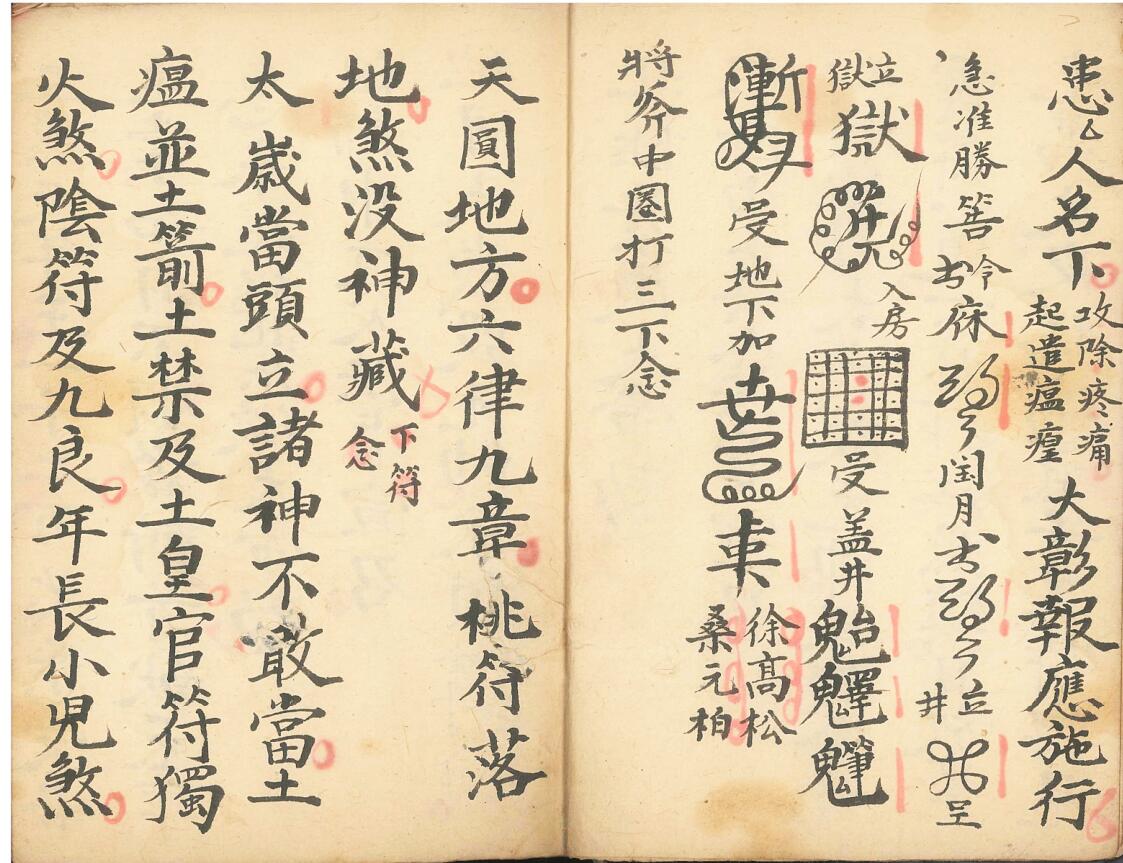 患厶人名下攻除疼痛起遣瘟瘽大彰報應施行
急准勝筶令
閏月
立井
立獄獄
入房
受盖井
漸
受地下加
徐高松
桑元柏
將斧中圈打三下念
天圓地方六律九章桃符落
地煞没神藏下符念
太歲當頭立諸神不敢當土
瘟並土箭土禁及土皇官符獨
火煞陰符及九良年長小児煞